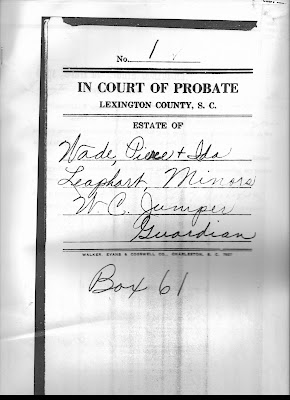 No. 1
IN COURT OF PROBATE
LEXINGTON COUNTY, S. C.
ESTATE OF
Wade, Pierce + Ida
Leaphart, Minors
W. C. Jumper
Guardian
WALKER, EVANS & COGSWELL CO., CHARLESTON, S. C.
Box 61